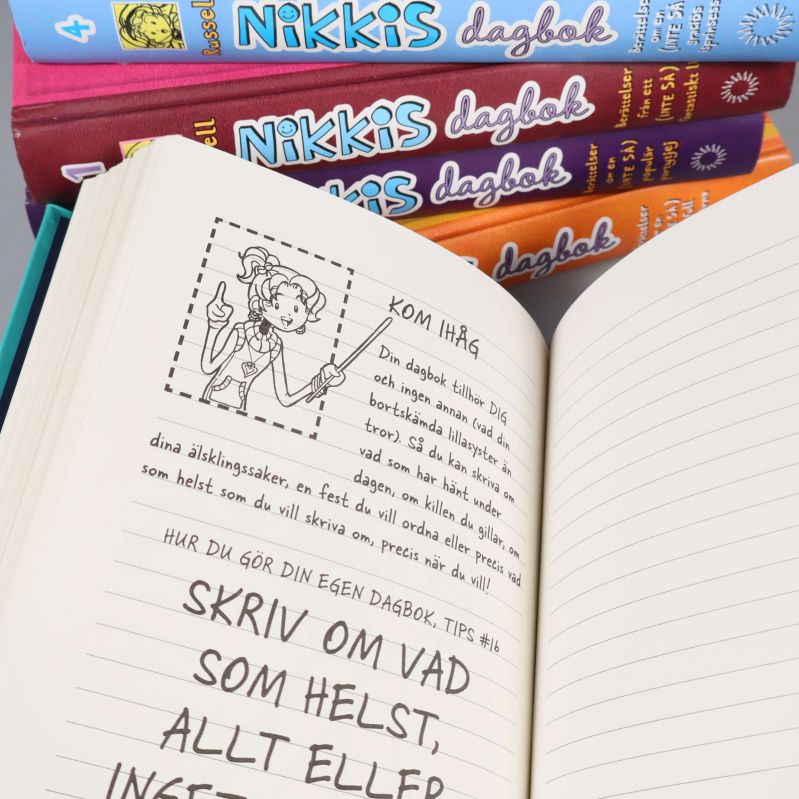 4
Russell
NIKKIS dagbok
Berättelser
om en
(INTE SÅ)
graciös
1
ell
NIKKIS dagbok
Berättelser
från ett
(INTE SÅ)
fantastiskt
NIKKIS dagbok
Berättelser
om en
(INTE SÅ)
populär
partytjej
dagbok
(INTE SÅ)
KOM IHÅG
Din dagbok tillhör DIG
och ingen annan (vad din
bortskämda lillasyster än
tror). Så du kan skriva om
vad som har hänt under
dagen, om killen du gillar, om
dina älsklingssaker, en fest du vill ordna eller precis vad
som helst som du vill skriva om, precis när du vill!
HUR DU GÖR DIN EGEN DAGBOK, TIPS #16
SKRIV OM VAD
SOM HELST,
ALLT ELLER
INGET